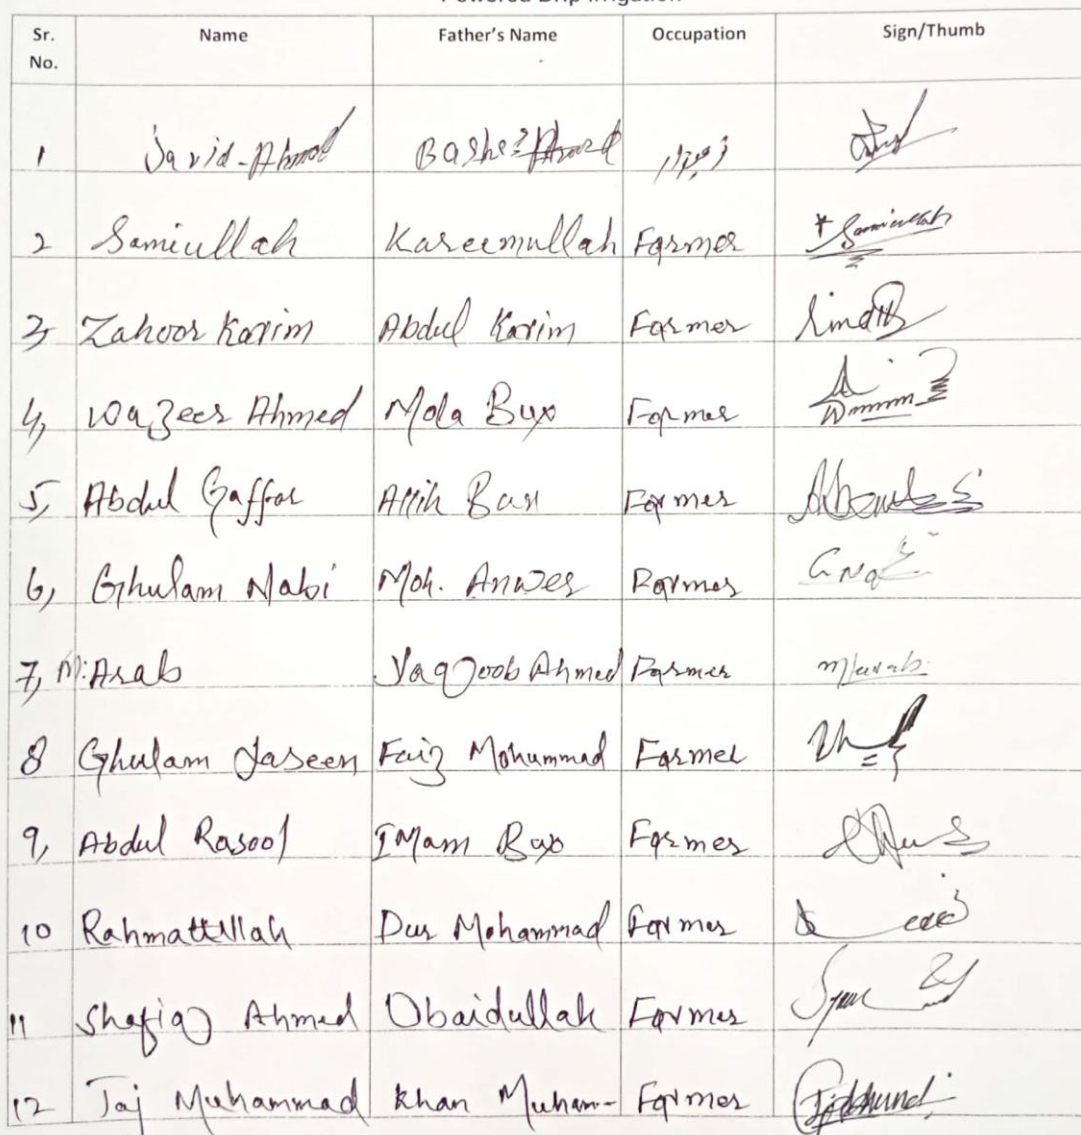 Powered Drip Irrigation
Sr. No. Name Father's Name Occupation Sign/Thumb
1 Javid-Ahmad Basheer Ahmed زمیندار
2 Samiullah Kareemullah Farmer Samiullah
3, Zahoor Karim Abdul Karim Farmer
4, Wazeer Ahmed Mola Bux Farmer
5, Abdul Gaffar Allih Bax Farmer
6, Ghulam Nabi Moh. Anwer Farmer
7, M. Arab Yaqoob Ahmed Farmer M/arab
8 Ghulam Yaseen Faiz Mohummad Farmer
9, Abdul Rasool IMam Bux Farmer
10 Rahmatullah Dur Mohammad Farmer
11 Shafiq Ahmed Obaidullah Farmer
12 Taj Muhammad Khan Muham- Farmer